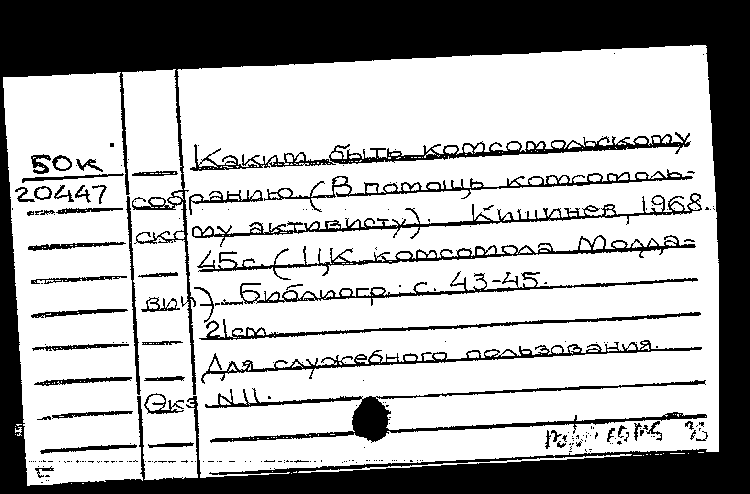 50к
20447
Каким быть комсомольскому
собранию. (В помощь комсомоль-
скому активисту). Кишинев, 1968.
45с. (ЦК комсомола Молда-
вии). Библиогр.: с. 43-45.
21см.
Для служебного пользования.
Экз N11.